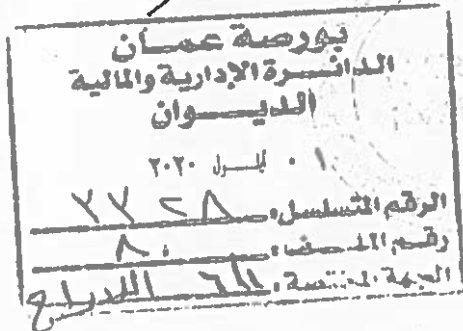 بورصة عمان
الدائرة الإدارية والمالية
الديوان
٠١ أيلول ٢٠٢٠
الرقم المتسلسل:
رقم الملف: ٨٠
الجهة المختصة: